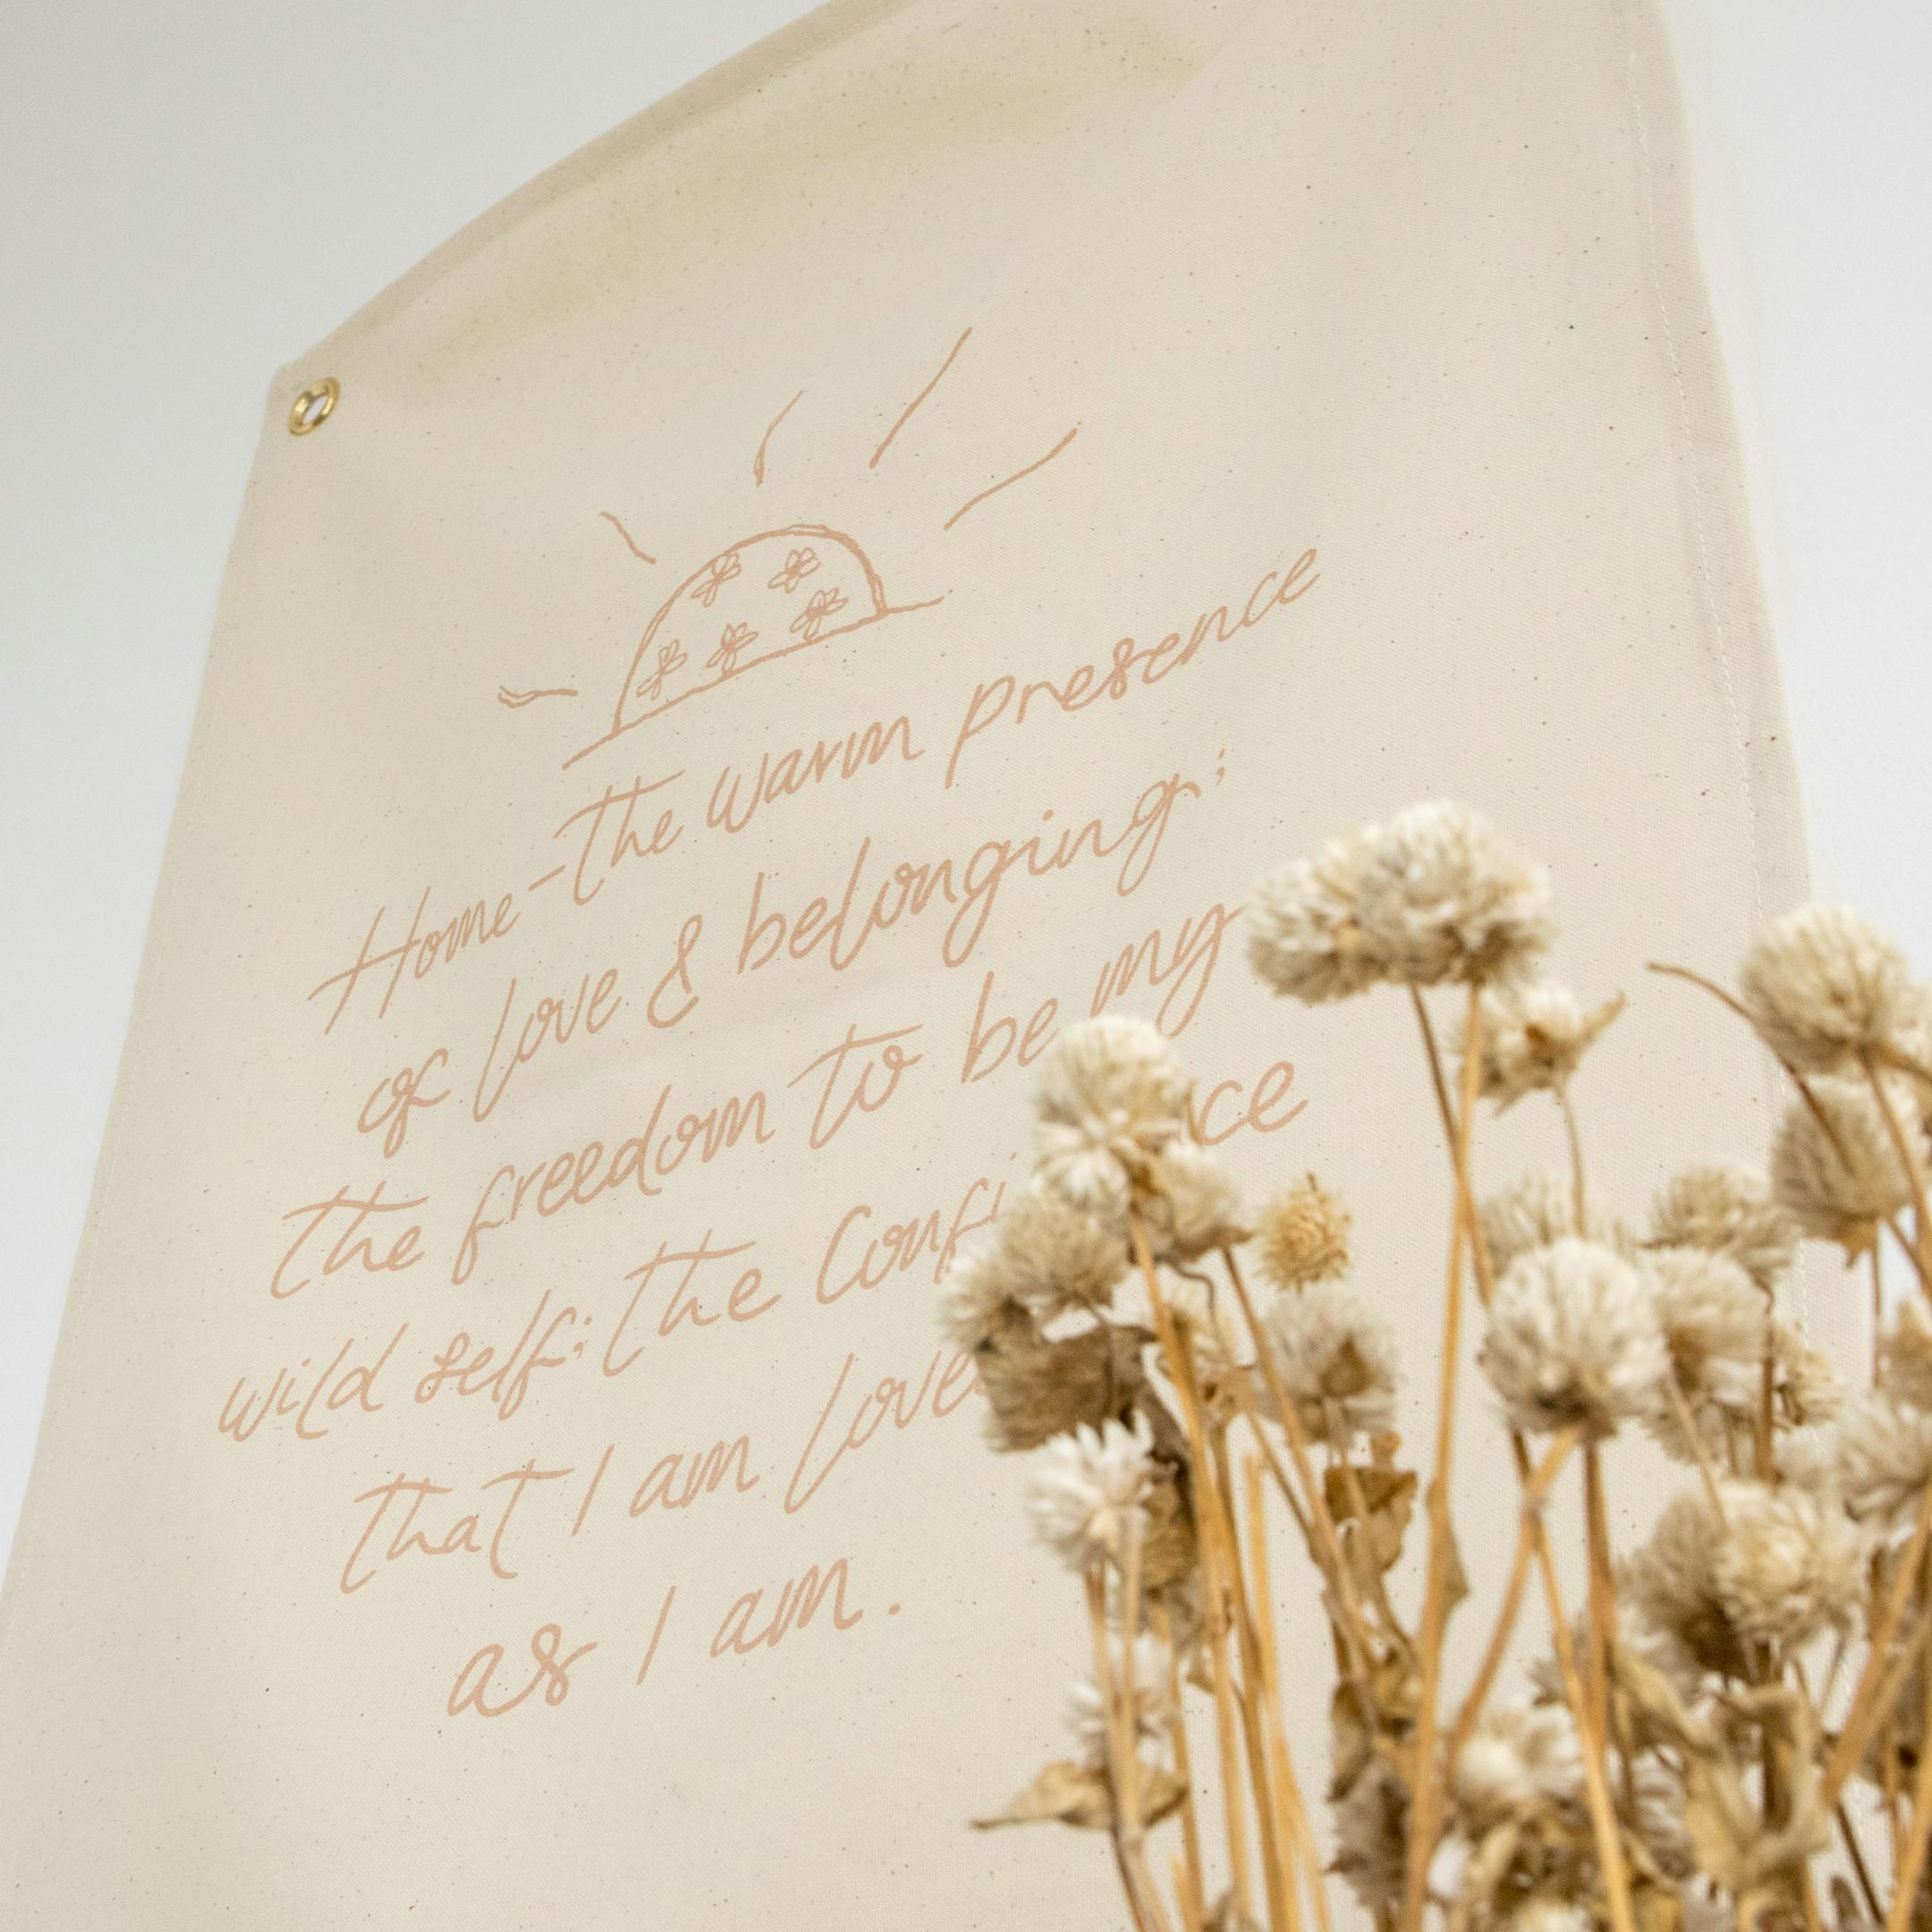 Home - the warm presence
of love & belonging;
the freedom to be my
wild self; the
that I am
as I am.